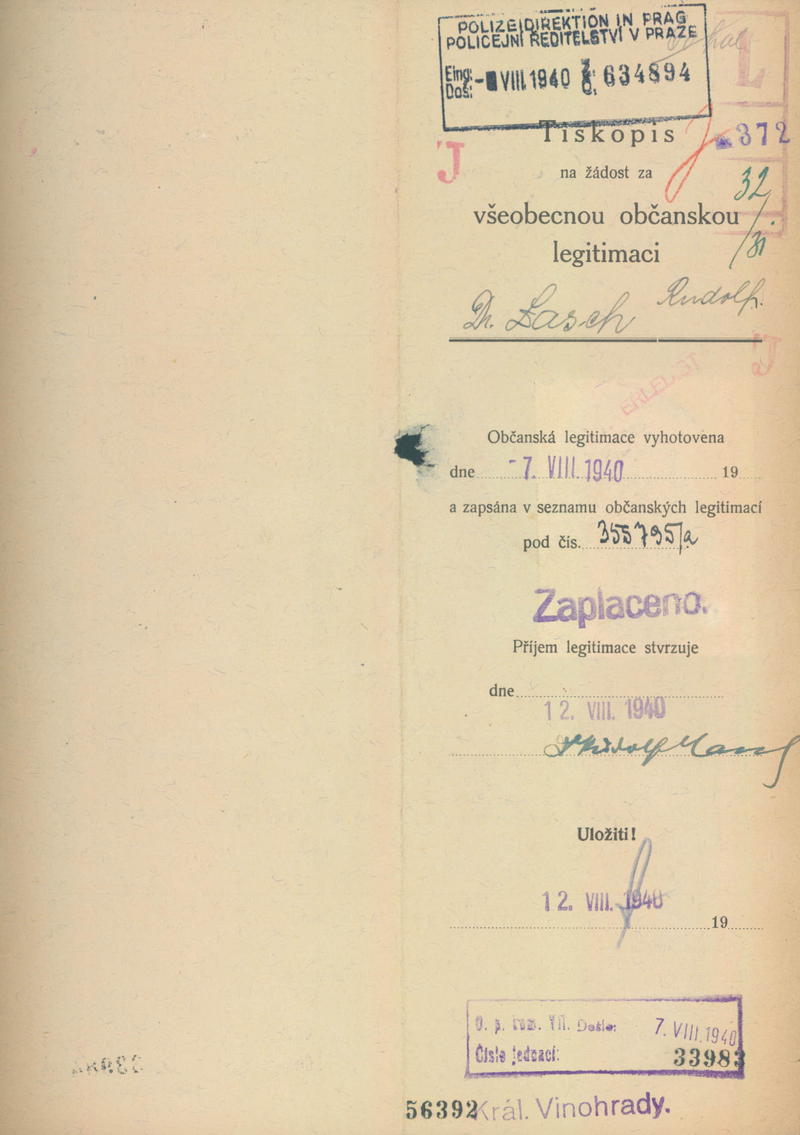 POLIZEIDIREKTION IN PRAG
POLICEJNÍ ŘEDITELSTVÍ V PRAZE
Eing:
Doš:
VIII.1940
Č. 634894
L
Tiskopis
372
J
na žádost za
32
všeobecnou občanskou
legitimaci
31
Dr. Lasch Rudolf.
J
ERLEDIGT
Občanská legitimace vyhotovena
dne -7. VIII. 1940 19
a zapsána v seznamu občanských legitimací
pod čís. 355795/a
Zaplaceno.
Příjem legitimace stvrzuje
dne
12. VIII. 1940
Uložiti!
12. VIII. 1940
19
Došlo: 7. VIII. 1940
Číslo jednací: 33983
56392 Král. Vinohrady.